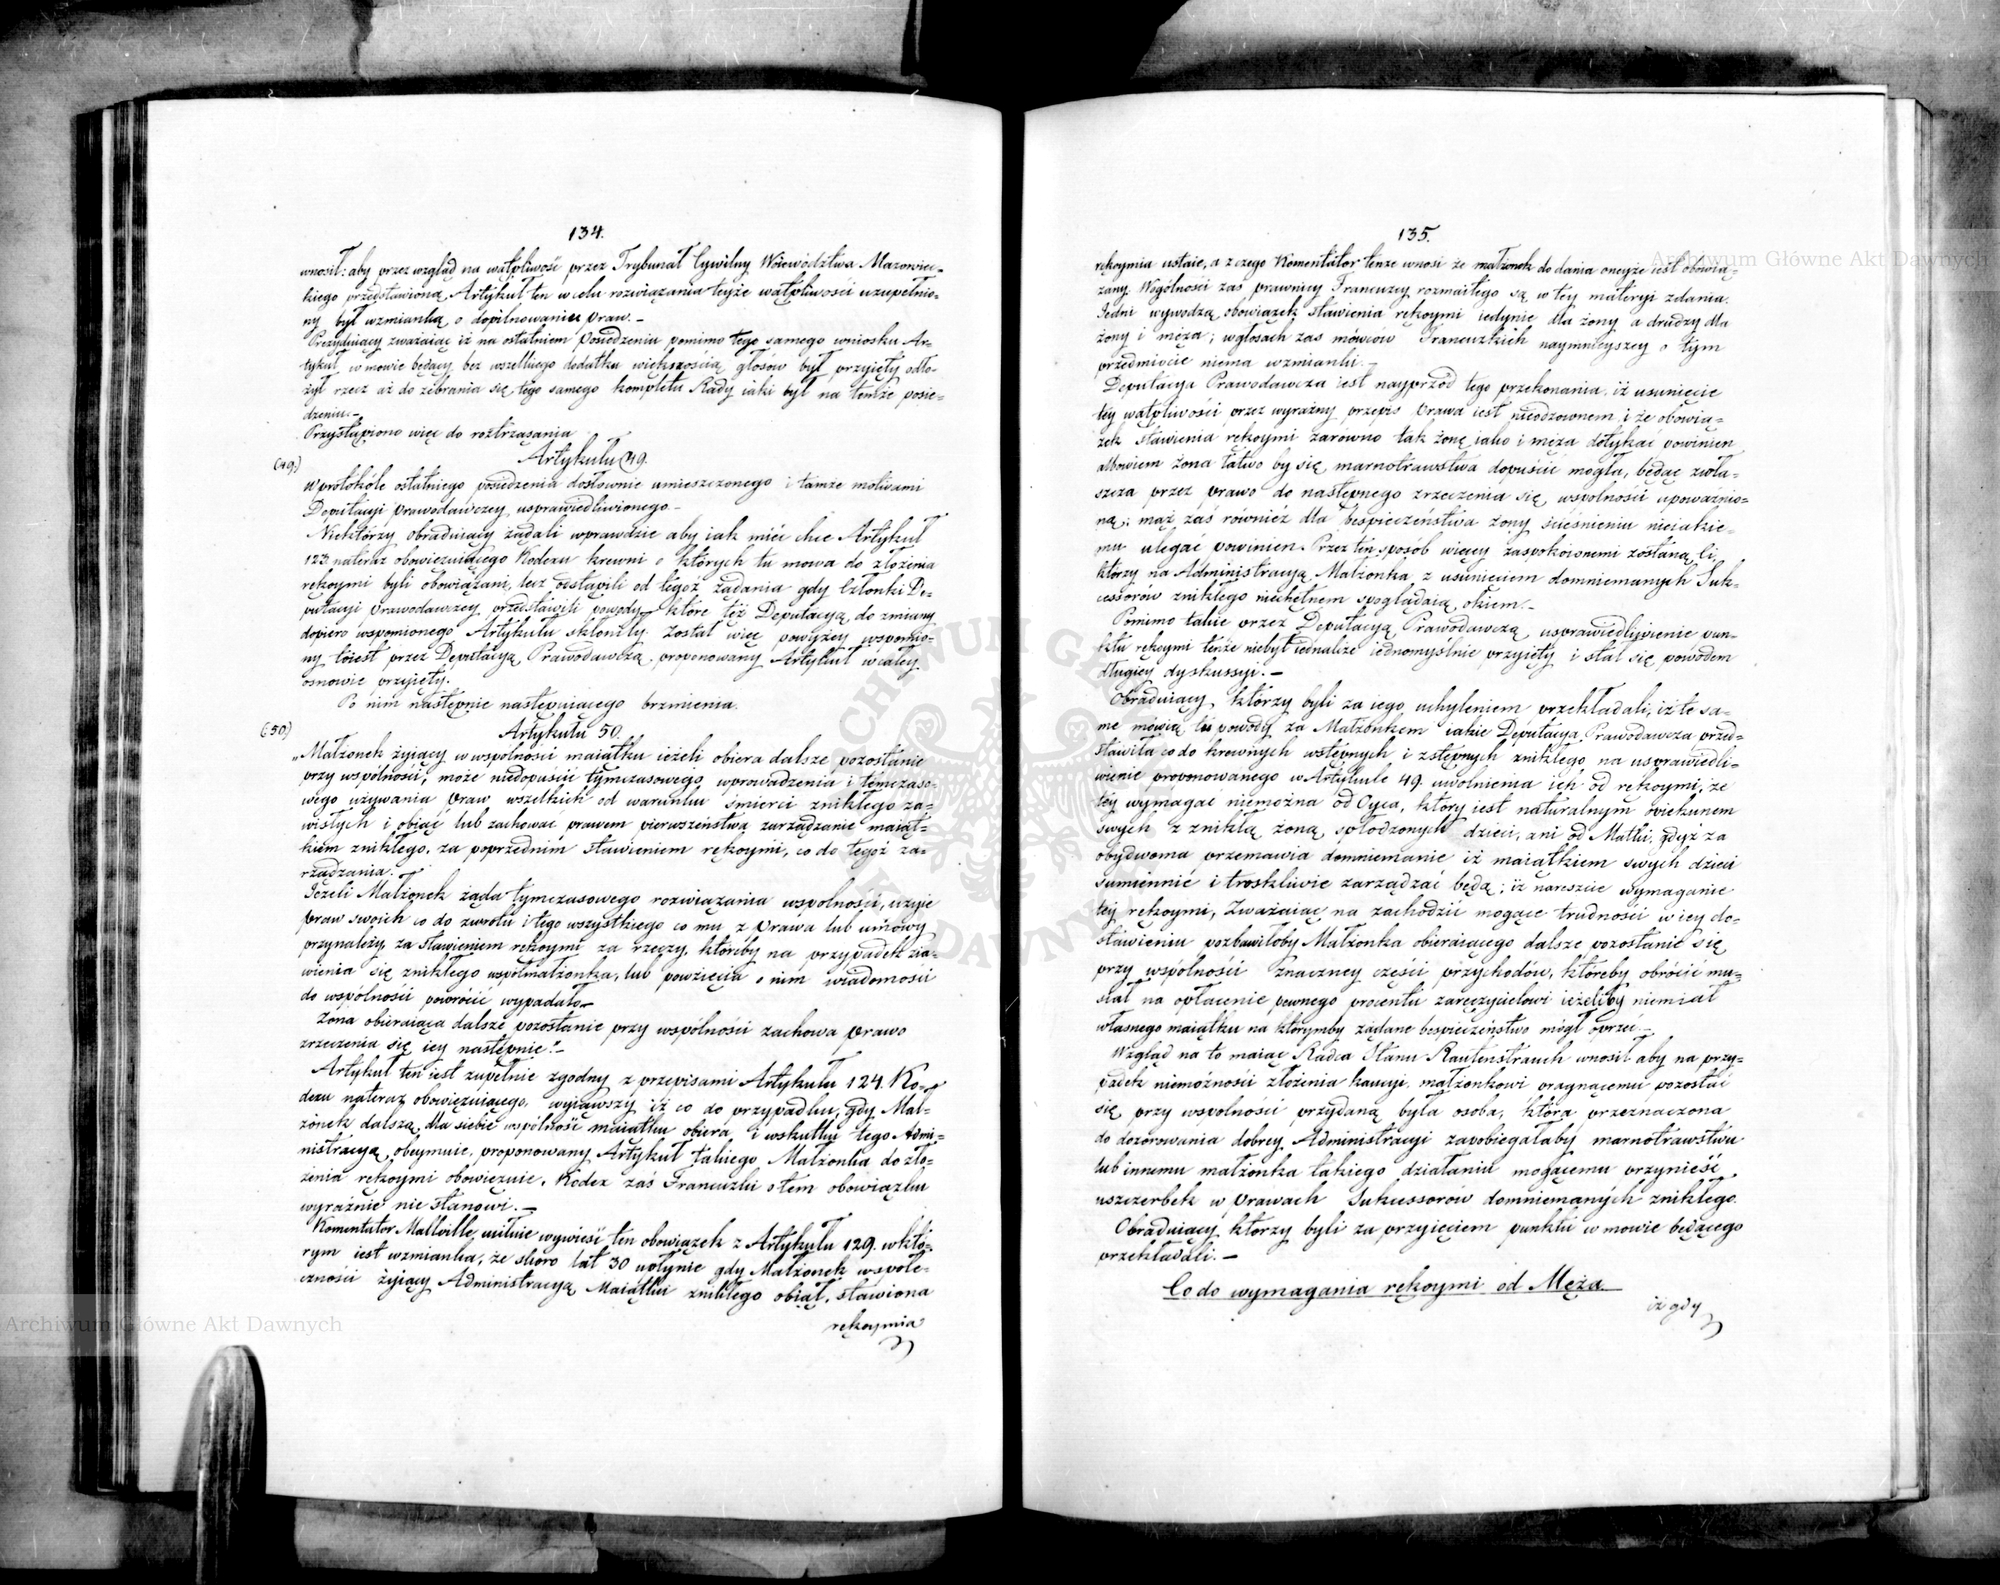 134.
wnosił: aby przez wzgląd na wątpliwość przez Trybunał Cywilny Woiewództwa Mazowiec-
kiego przedstawioną, Artykuł ten w celu rozwiązania teyże wątpliwości uzupełnio-
ny był wzmianką o dopilnowaniu praw. -
Prezyduiący zważaiąc iż na ostatniem posiedzeniu pomimo tego samego wniosku Ar-
tykuł w mowie będący bez wszelkiego dodatku większością głosów był przyięty odło-
żył rzecz aż do zebrania się tego samego kompletu Rady iaki był na temże posie-
dzeniu. -
Przystąpiono więc do roztrząsania
Artykułu 49.
(:49:)
w protokóle ostatniego posiedzenia dosłownie umieszczonego i tamże motivami
Deputacyi prawodawczey usprawiedliwionego -
Niektórzy obraduiący żądali wprawdzie aby iak mieć chce Artykuł
123 nateraz obowiezuiącego Kodexu krewni o których tu mowa do złożenia
rękoymi byli obowiązani, lecz odstąpili od tegoż żądania gdy Członki De-
putacyi prawodawczey przedstawili powody które też Deputacyą do zmiany
dopiero wspomionego Artykułu skłoniły. Został więc powyżey wspomio-
ny toiest przez Deputacyą Prawodawczą proponowany Artykuł w całey
osnowie przyięty.
Po nim następnie następuiącego brzmienia.
Artykułu 50.
(:50:)
„Małżonek żyiący w wspólności maiątku ieżeli obiera dalsze pozostanie
przy wspólności, może niedopuścić tymczasowego wprowadzenia i tymczaso-
wego używania praw wszelkich od warunku śmierci znikłego za-
wisłych i obiąć lub zachować prawem pierwszeństwa zarządzanie maiąt-
kiem znikłego, za poprzednim stawieniem rękoymi, co do tegoż za-
rządzania.
Jeżeli Małżonek żąda tymczasowego rozwiązania wspólności, użyie
praw swoich co do zwrotu i tego wszystkiego co mu z prawa lub umowy
przynależy za stawieniem rękoymi za rzeczy, któreby na przypadek zia-
wienia się znikłego współmałżonka, lub powzięcia o nim wiadomości
do wspólności powrócić wypadało -
Żona obieraiąca dalsze pozostanie przy wspólności zachowa prawo
zrzeczenia się iey następnie." -
Artykuł ten iest zupełnie zgodny z przepisami Artykułu 124. Ko-
dexu nateraz obowięzuiącego, wyiąwszy iż co do przypadku, gdy Mał-
żonek dalszą dla siebie wspólność maiątku obiera i wskutku tego Admi-
nistracyą obeymuie, proponowany Artykuł takiego Małżonka do zło-
żenia rękoymi obowięzuie, Kodex zaś Francuzki o tem obowiązku
wyraźnie nie stanowi. -
Komentator Mallville, usiłuie wywieść ten obowiązek z Artykułu 129. w któ-
rym iest wzmianka, że skoro lat 30 upłynie gdy Małżonek w społe-
czności żyiący Administracyą Maiątku znikłego obiął, stawiona
rękoymia
135.
rękoymia ustaie, a z czego Komentator tenże wnosi że małżonek do dania oneyże iest obowią-
zany. Wogólności zaś prawnicy Francuzcy rozmaitego są w tey materyi zdania.
Jedni wywodzą obowiązek stawienia rękoymi iedynie dla żony a drudzy dla
żony i męża; w głosach zaś mówców Francuzkich naymnieyszey o tym
przedmiocie niema wzmianki. -
Deputacya Prawodawcza iest nayprzód tego przekonania, iż usunięcie
tey wątpliwości przez wyraźny przepis Prawa iest nieodzownem, i że obowią-
zek stawienia rękoymi zarówno tak żonę iako i męża dotykać powinien
albowiem żona łatwo by się marnotrawstwa dopuścić mogła, będąc zwła-
szcza przez prawo do następnego zrzeczenia się wspólności upoważnio-
ną; mąż zaś również dla bespieczeństwa żony ścieśnieniu nieiakie-
mu ulegać powinien. Przez ten sposób więcey zaspokoionemi zostaną Ci,
którzy na Administracyą Małżonka, z usunięciem domniemanych Suk-
cessorów znikłego niechętnem spoglądaią okiem. -
Pomimo takie przez Deputacyą Prawodawczą usprawiedliwienie pun-
ktu rękoymi tenże niebył iednakże iednomyślnie przyięty i stał się powodem
długiey dyskussyi. -
Obraduiący którzy byli za iego uchyleniem przekładali, iż te sa-
me mówią tu powody za Małżonkem iakie Deputacya Prawodawcza przed-
stawiła co do krewnych wstępnych i zstępnych znikłego na usprawiedli-
wienie proponowanego w Artykule 49. uwolnienia ich od rękoymi, że
tey wymagać niemożna od Oyca, który iest naturalnym opiekunem
swych z znikłą żoną spłodzonych dzieci, ani od Matki, gdyż za
obydwoma przemawia domniemanie iż maiątkiem swych dzieci
sumiennie i troskliwie zarządzać będą; iż nareszcie wymaganie
tey rękoymi, Zważaiąc na zachodzić mogące trudności w iey do-
stawieniu pozbawiłoby Małżonka obieraiącego dalsze pozostanie się
przy wspólności znaczney części przychodów, któreby obrócić mu-
siał na opłacenie pewnego procentu zaręczycielowi ieżeliby niemiał
własnego maiątku na którymby żądane bespieczeństwo mógł oprzeć. -
Wzgląd na to maiąc Radca Stanu Rautenstrauch wnosił aby na przy-
padek niemożności złożenia kaucyi, małżonkowi pragnącemu pozostać
się przy wspólności przydaną była osoba, która przeznaczona
do dozorowania dobrey Administracyi zapobiegałaby marnotrawstwu
lub innemu małżonka takiego działaniu mogącemu przynieść
uszczerbek w Prawach Sukcessorów domniemanych znikłego.
Obraduiący którzy byli za przyięciem punktu w mowie będącego
przekładali. -
Co do wymagania rękoymi od Męża.
iż gdy
Archiwum Główne Akt Dawnych
Archiwum Główne Akt Dawnych